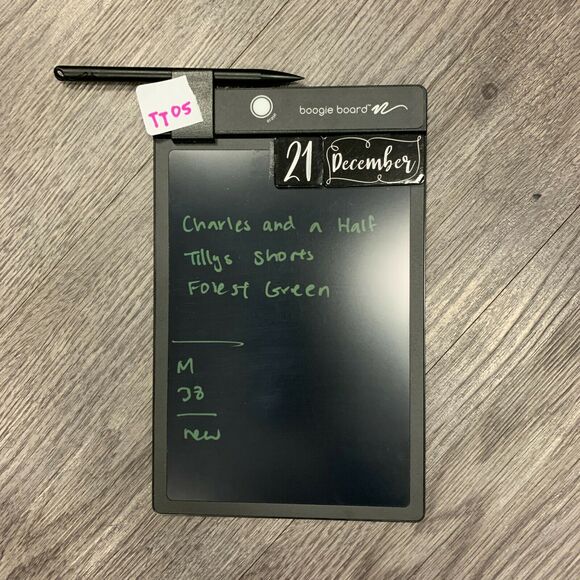 TT05
boogie board™
erase
21 December
Charles and a Half
Tillys Shorts
Forest Green
M
38
new